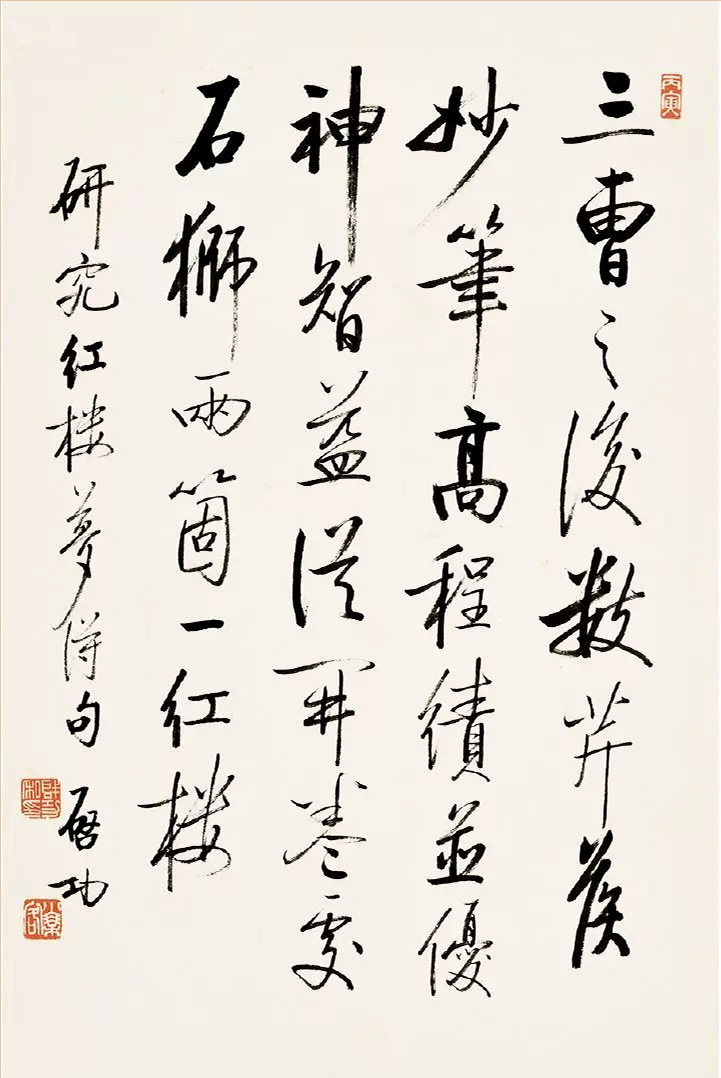 丙寅
三曹之後数芹侯
妙筆高程績並優
神智益從開卷處
石獅兩箇一红楼
研究红楼夢得句
启功